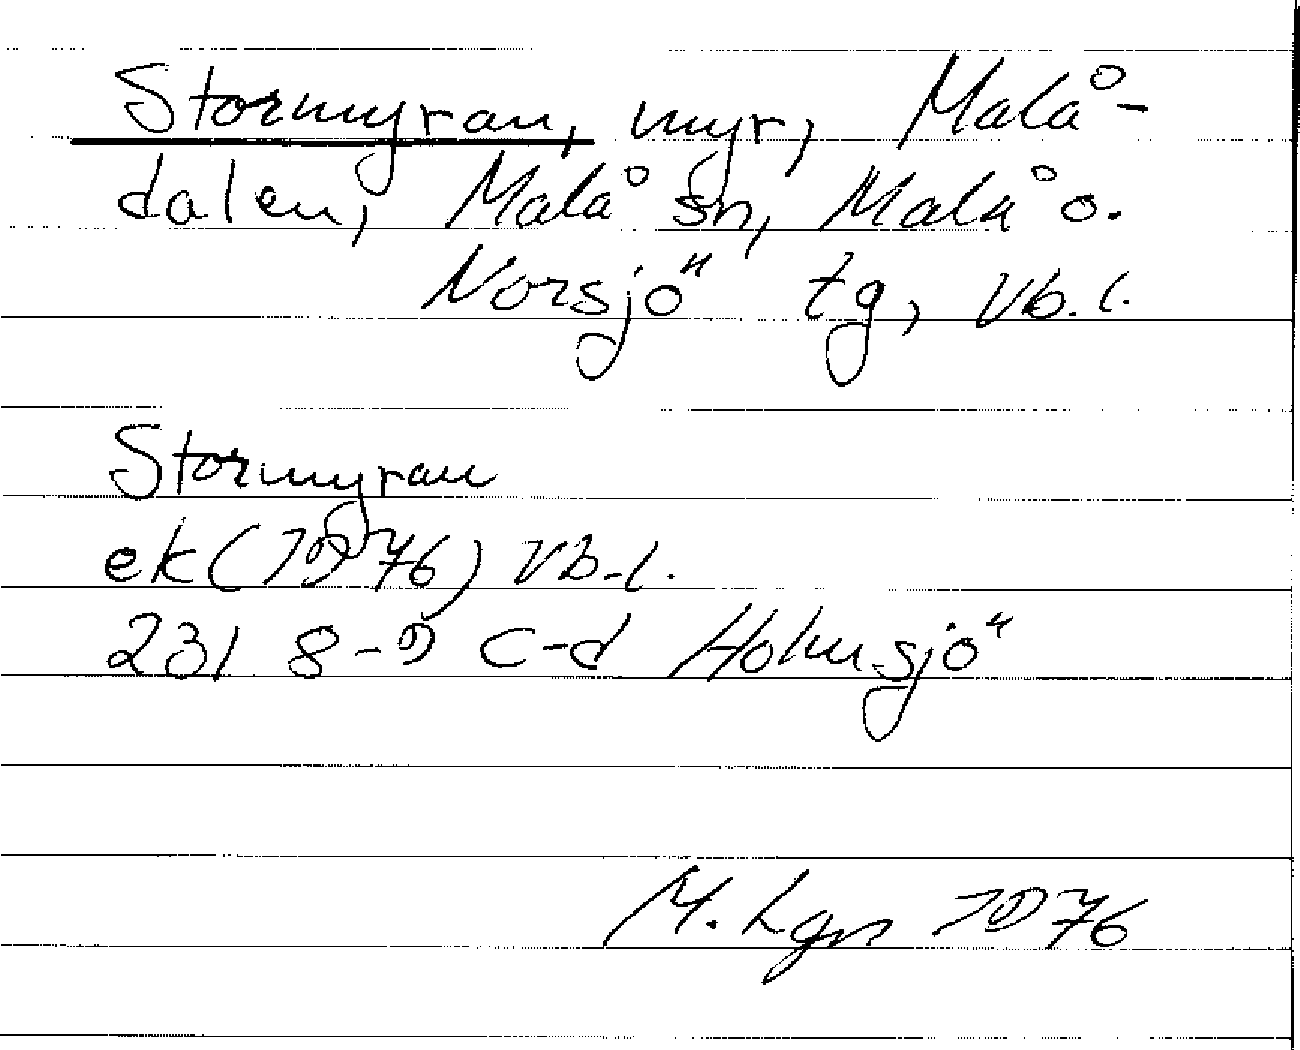 Stormyran, myr, Malå-
dalen, Malå sn, Malå o.
Norsjö tg, Vb.l.
Stormyran
ek (1976) Vb.l.
231 8-9 c-d Holmsjö
M. Lgn 1976